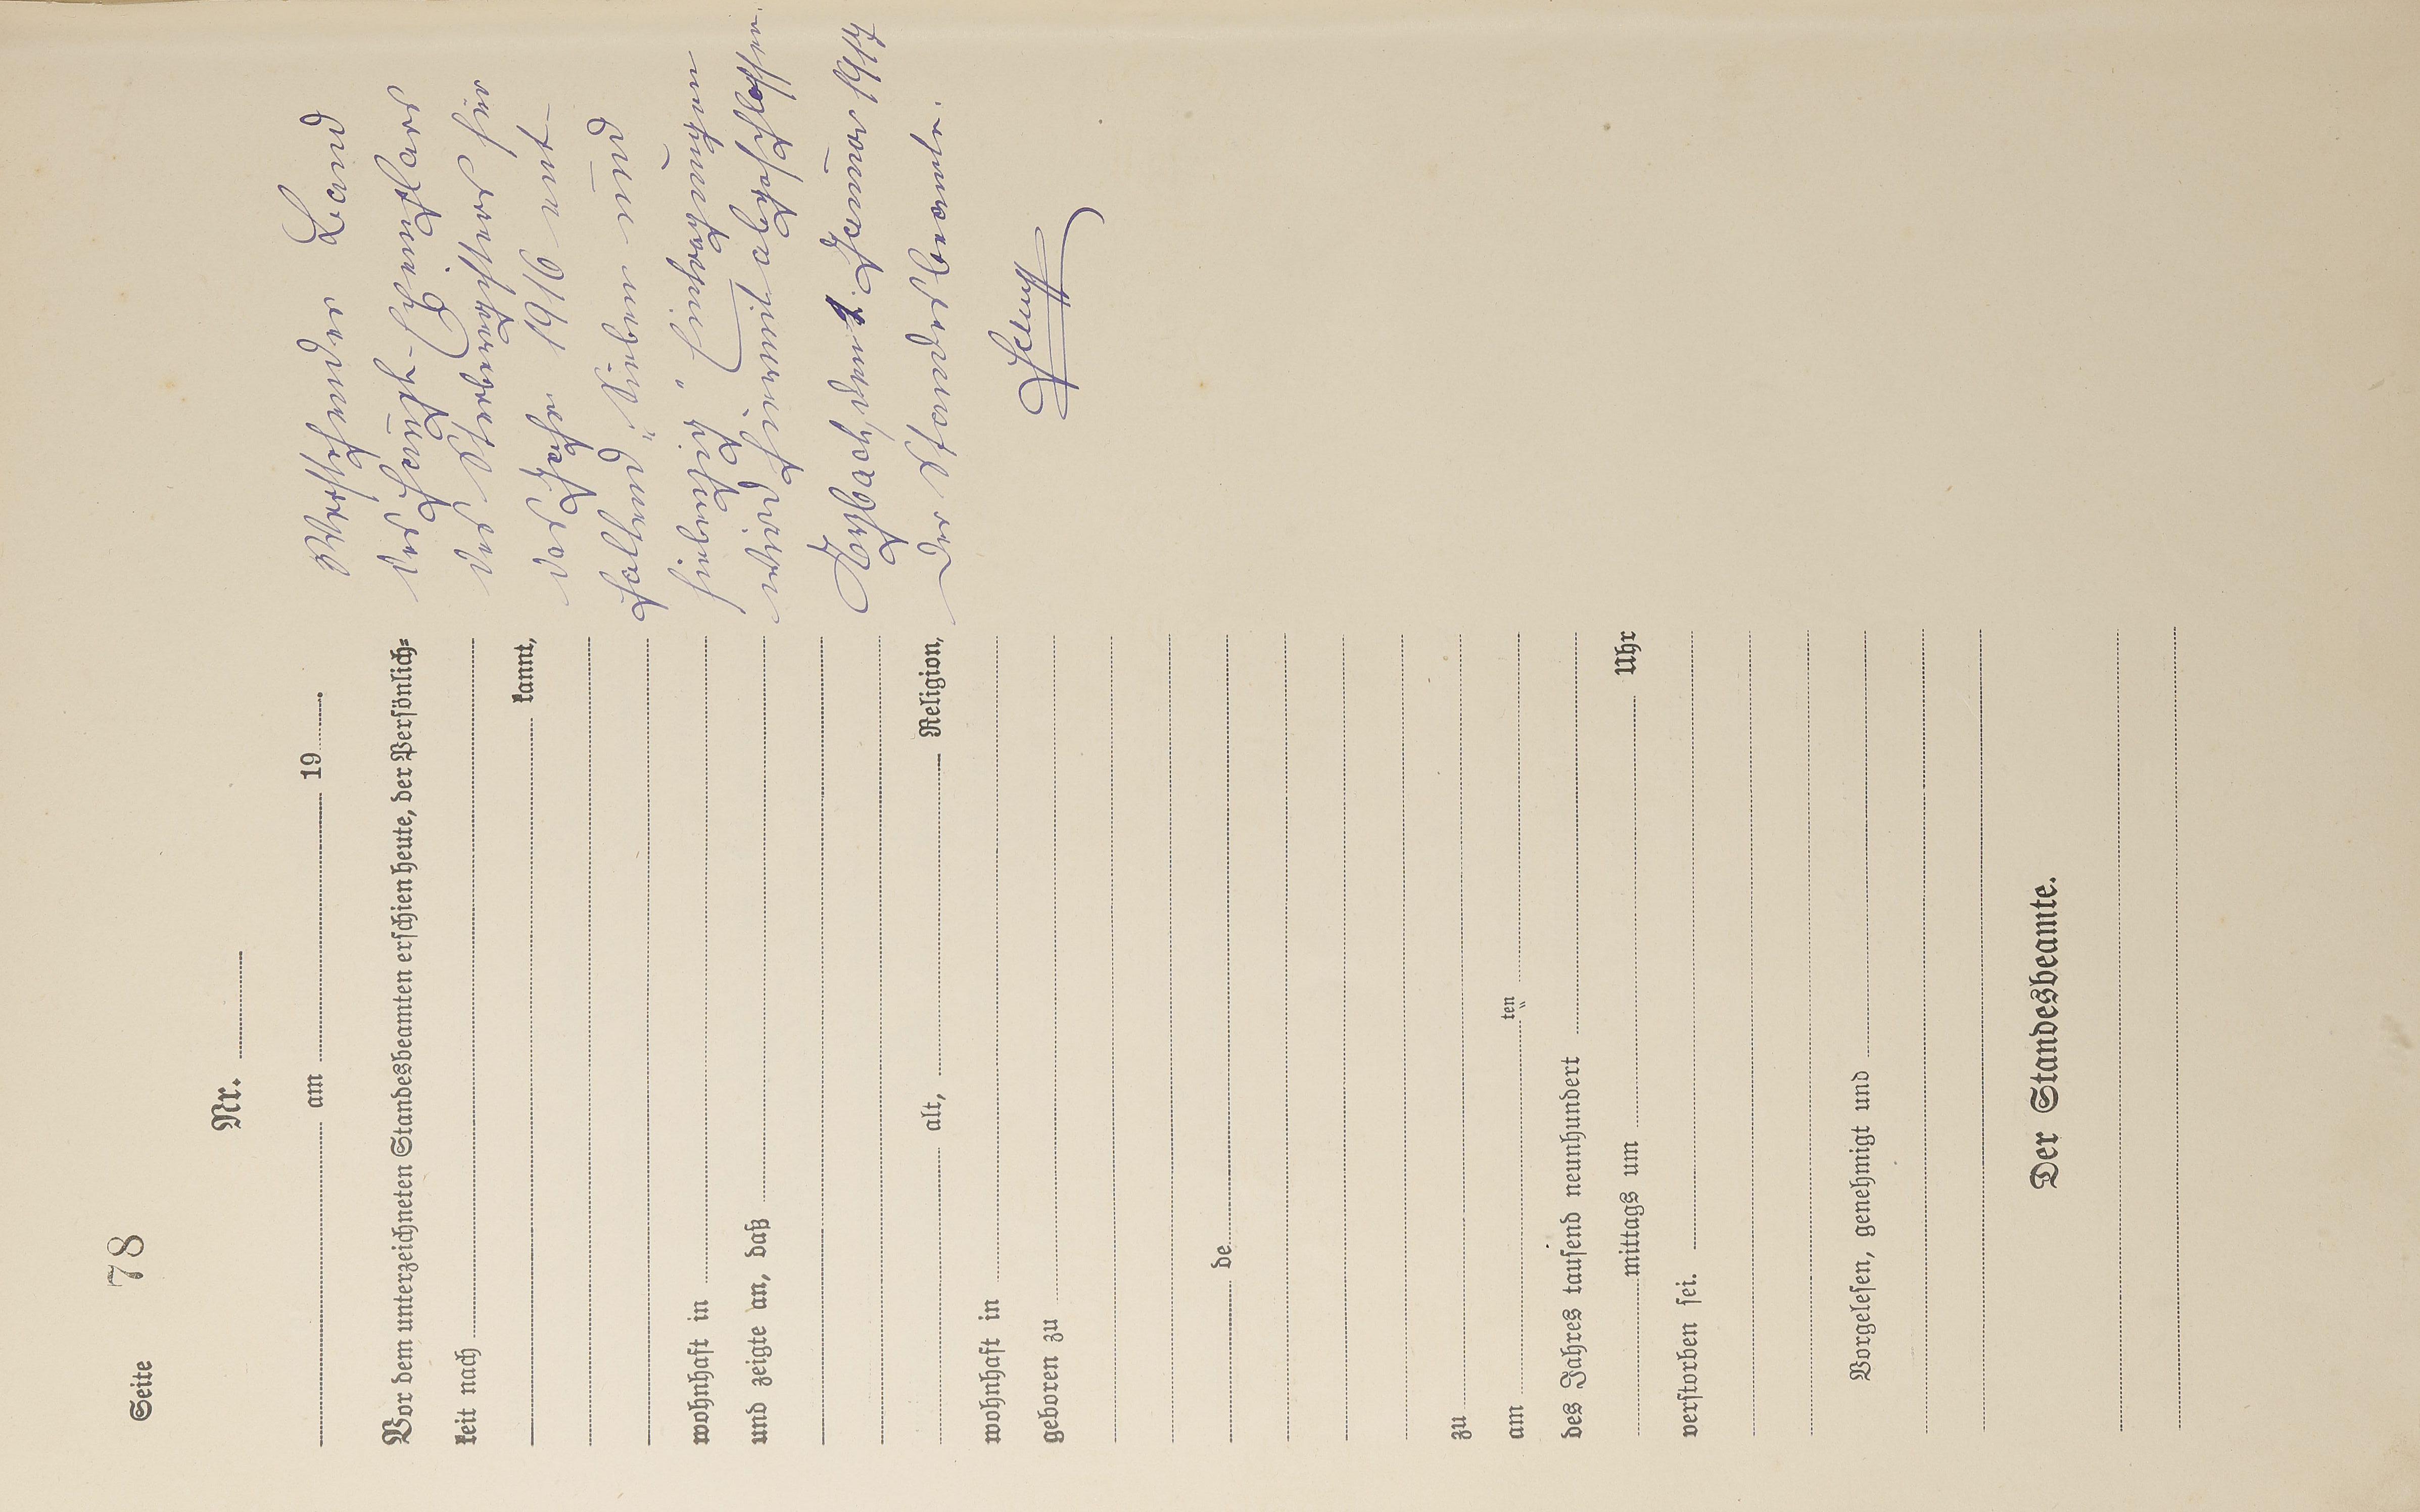 Seite 78
Nr.
am 19 .
Vor dem unterzeichneten Standesbeamten erschien heute, der Persönlich-
keit nach
kannt,
wohnhaft in
und zeigte an, daß
alt, Religion,
wohnhaft in
geboren zu
de
zu
am ten
des Jahres tausend neunhundert
mittags um Uhr
verstorben sei.
Vorgelesen, genehmigt und
Der Standesbeamte.
Vorstehender Band
des Haupt-
für
das Jahr 1916 mit
„Sieben und
siebenzig“ Eintragungen
wird hiermit abgeschlossen.
Januar 1917
Der Standesbeamte.